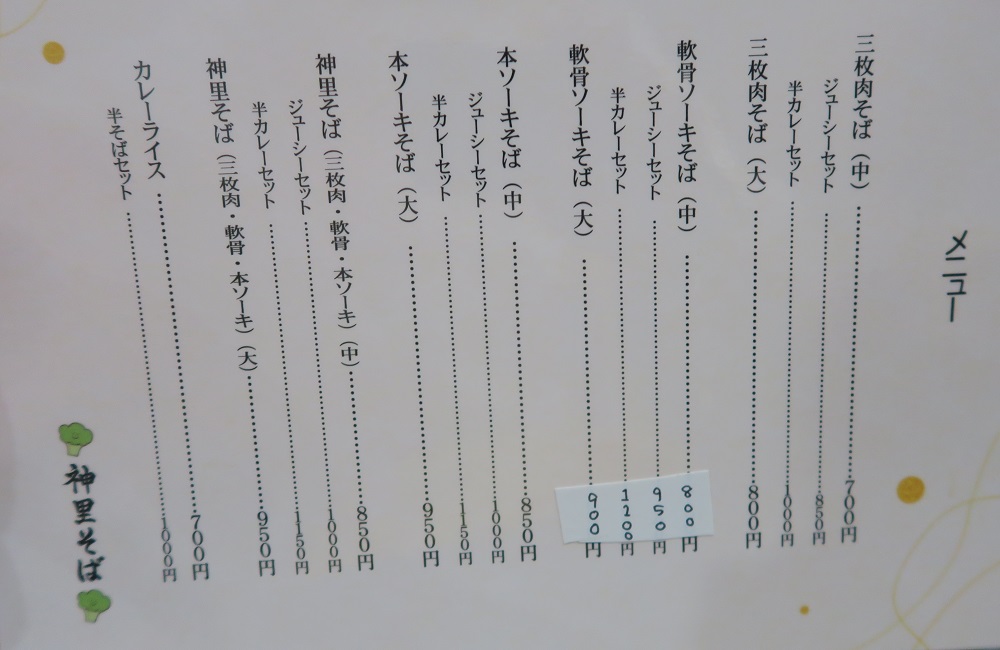 メニュー
三枚肉そば（中）………700円
ジューシーセット………850円
半カレーセット………1000円
三枚肉そば（大）………800円
軟骨ソーキそば（中）………800円
ジューシーセット………950円
半カレーセット………1200円
軟骨ソーキそば（大）………900円
本ソーキそば（中）………850円
ジューシーセット………1000円
半カレーセット………1150円
本ソーキそば（大）………950円
神里そば（三枚肉・軟骨・本ソーキ）（中）………850円
ジューシーセット………1000円
半カレーセット………1150円
神里そば（三枚肉・軟骨・本ソーキ）（大）………950円
カレーライス………700円
半そばセット………1000円
神里そば